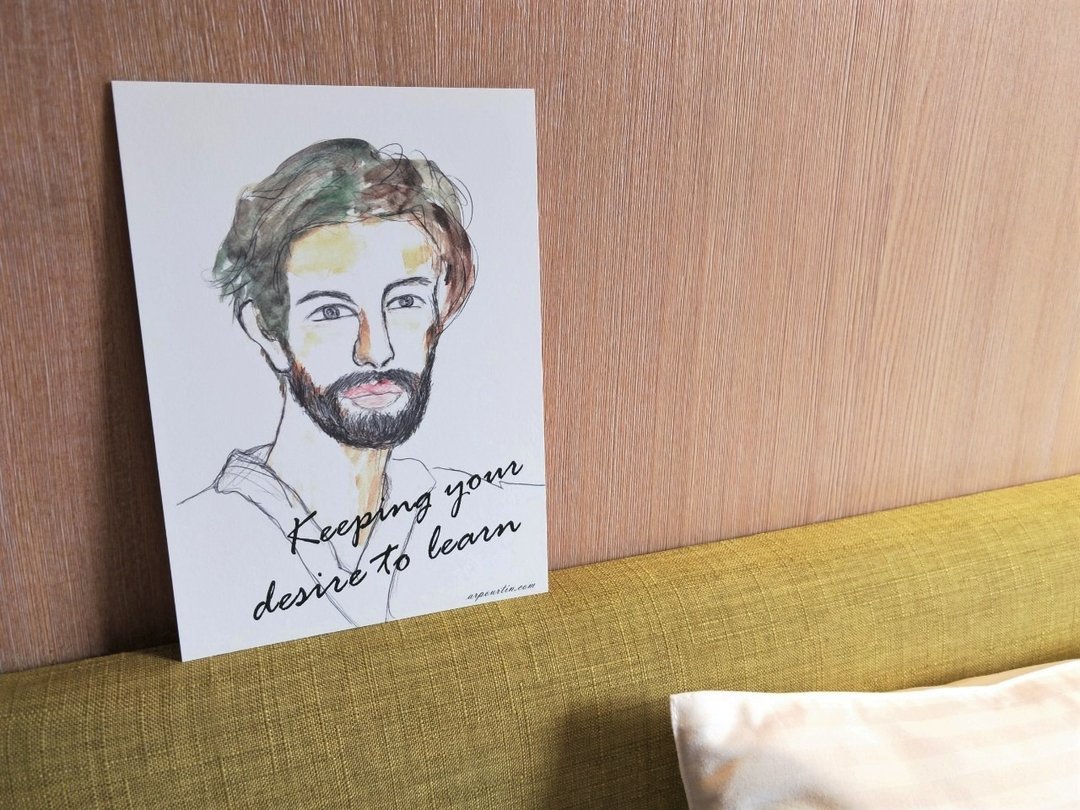 Keeping your
desire to learn
arpourtin.com